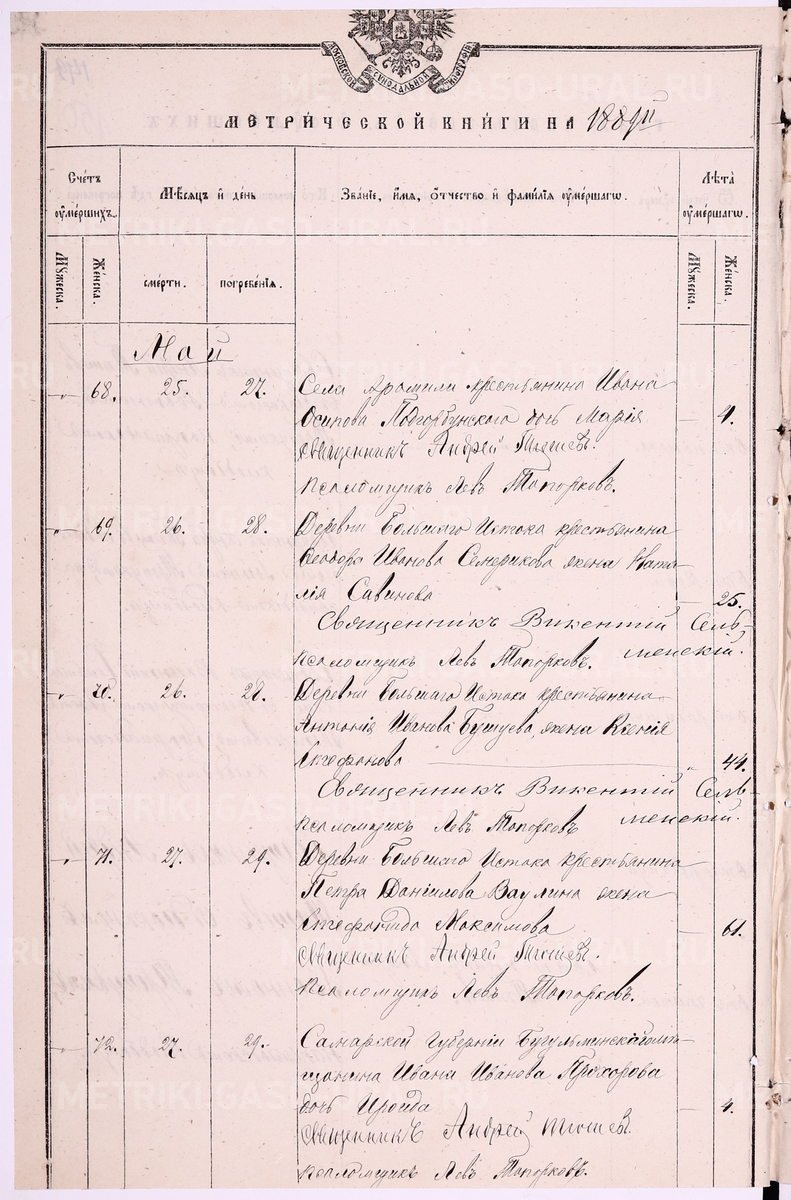 МОСКОВСКОЙ СѴНОДАЛЬНОЙ ТѴПОГРАФІИ
МЕТРИ́ЧЕСКОЙ КНИ́ГИ НА 1889й
Сче́тъ оумершихъ.
Мѣсяцъ и де́нь
Зва́ніе, и́мя, о́тчество и фами́лія оуме́ршагω.
Лѣта̀ оуме́ршагω.
Мꙋжеска.
Же́нска.
сме́рти.
погребе́нія.
Мꙋжеска.
Же́нска.
Май
68. 25. 27. Села Арамили крестьянина Ивана
Осипова Подгорбунского дочь Марія 4.
Священникъ Андрей
Псаломщикъ Левъ Топорковъ.
69. 26. 28. Деревни Большаго Истока крестьянина
Ѳеодора Иванова Семерикова жена Ната-
лія Савинова 25.
Священникъ Викентій Сель-
менскій.
Псаломщикъ Левъ Топорковъ.
70. 26. 28. Деревни Большаго Истока крестьянина
Антонія Иванова Бушуева, жена Ксенія
44.
Священникъ Викентій Сель-
менскій.
Псаломщикъ Левъ Топорковъ
71. 27. 29. Деревни Большаго Истока крестьянина
Петра Даніилова Ваулина жена
Максимова 61.
Священникъ Андрей
Псаломщикъ Левъ Топорковъ.
72. 27. 29. Самарской губерніи Бугульминскаго мѣ-
щанина Ивана Иванова Прохорова
дочь Ираида 4.
Священникъ Андрей
Псаломщикъ Левъ Топорковъ.
METRIKI.GASO-URAL.RU